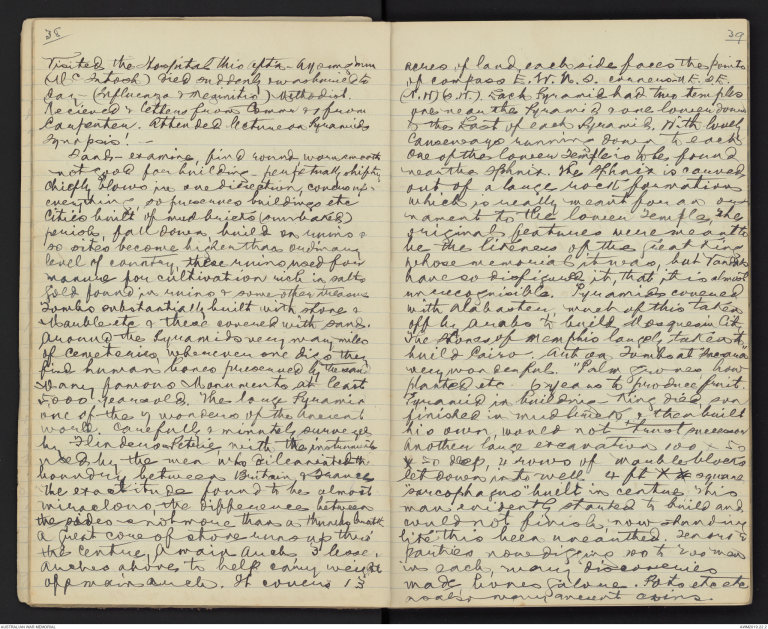 38
Visited the Hospital this afta. A young man
(McIntosh) died suddenly & was buried to
day - (Influenza & Meninitis) Methodist.
Recieved 2 letters from & from
Carpenter. Attended lecture on Pyramids
Synopsis! -
Sands - examine, find round worn smooth
not good for building - perpetually shifting
Chiefly blows in one direction,
everything, so preserves buildings etc
Cities built of mud bricks (sun baked)
perish, fall down, build on ruins &
so sites become higher than ordinary
level of country, these ruins used for
manure for cultivation rich in salts
Gold found in ruins & some other treasure
Tombs substantially built with stone &
Marble etc & these covered with sand.
Around the Pyramids very many miles
of cemeteries, wherever one digs they
find human bones preserved by the sand
Many famous Monuments at least
5000 years old. The large Pyramid
one of the 7 wonders of the ancient
world. Carefully & minutely surveyed
by Flinders Petrie, with the instruments
used by the men who delineated the
boundry between Britain & France
the exactitude found to be almost
miraculous, the difference between
the sides is not more than a thumbs breadth
A great core of stone runs up thro'
the centre, A main arch, 3 lesser
arches above to help carry weight
off main arch. It covers 13
39
acres of land, each side faces the points
of compass E. W. N. S. corners N.E. S.E.
(N.W) (S.W.). Each Pyramid had two temples
one near the Pyramid & one lower down
to the East of each Pyramid. With lovely
Causeways running down to each
one of the lower Temples to be found
near the Sphnix. The Sphnix is carved
out of a large rock formation
which is really meant for an or-
nament to the lower Temple, the
original features were meant to
be the likeness of the great King
whose memorial it was, but Vandals
have so disfigured it, that it is almost
unrecognisible. Pyramids covered
with alabaster, much of this taken
off by Arabs to build Mosques in City
The stones of Memphis largely taken to
build Cairo. Art on Tombs at "Saccara"
very wonderful. "Palm groves how
planted etc. 6 years to produce fruit.
Pyramid in building King died son
finished in mud bricks & then built
his own, would not trust successor
Another large excavation 100 - 50
deep, 2 rows of marble blocks
let down into well 4 ft square
"sarcophagus" built in centre this
man evidently started to build and
could not finish, now standing
like this been unearthed. Tears &
parties now digging 100 to 200 men
in each, many discoveries
made bones galore. Pots etc etc
 many ancient coins.
AUSTRALIAN WAR MEMORIAL